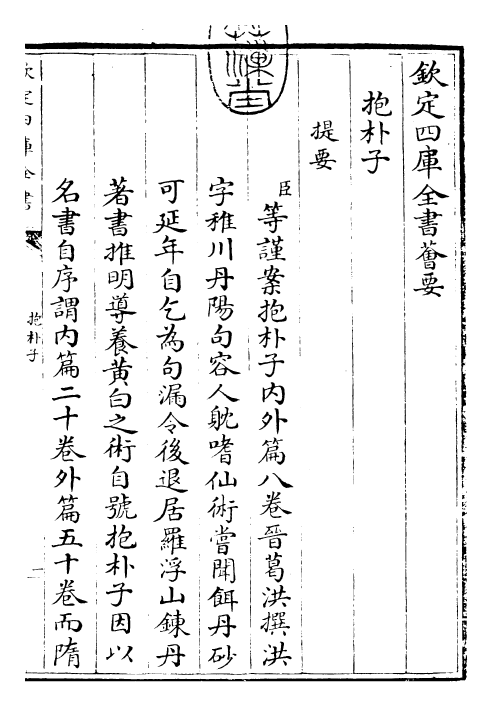 欽定四庫全書薈要
抱朴子
提要
臣等謹案抱朴子内外篇八卷晉葛洪撰洪
字稚川丹陽句容人躭嗜仙術嘗聞餌丹砂
可延年自乞為句漏令後退居羅浮山鍊丹
著書推明導養黃白之術自號抱朴子因以
名書自序謂内篇二十卷外篇五十卷而隋
欽定四庫全書
抱朴子
一